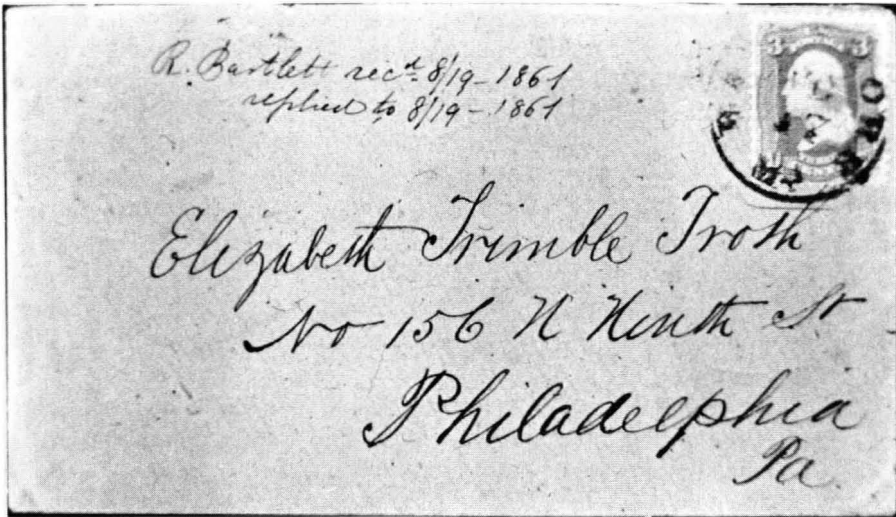 R. Bartlett recd. 8/19-1861
replied to 8/19-1861
Elizabeth Trimble Troth
No 156 N Ninth St
Philadelphia
Pa.
3
3